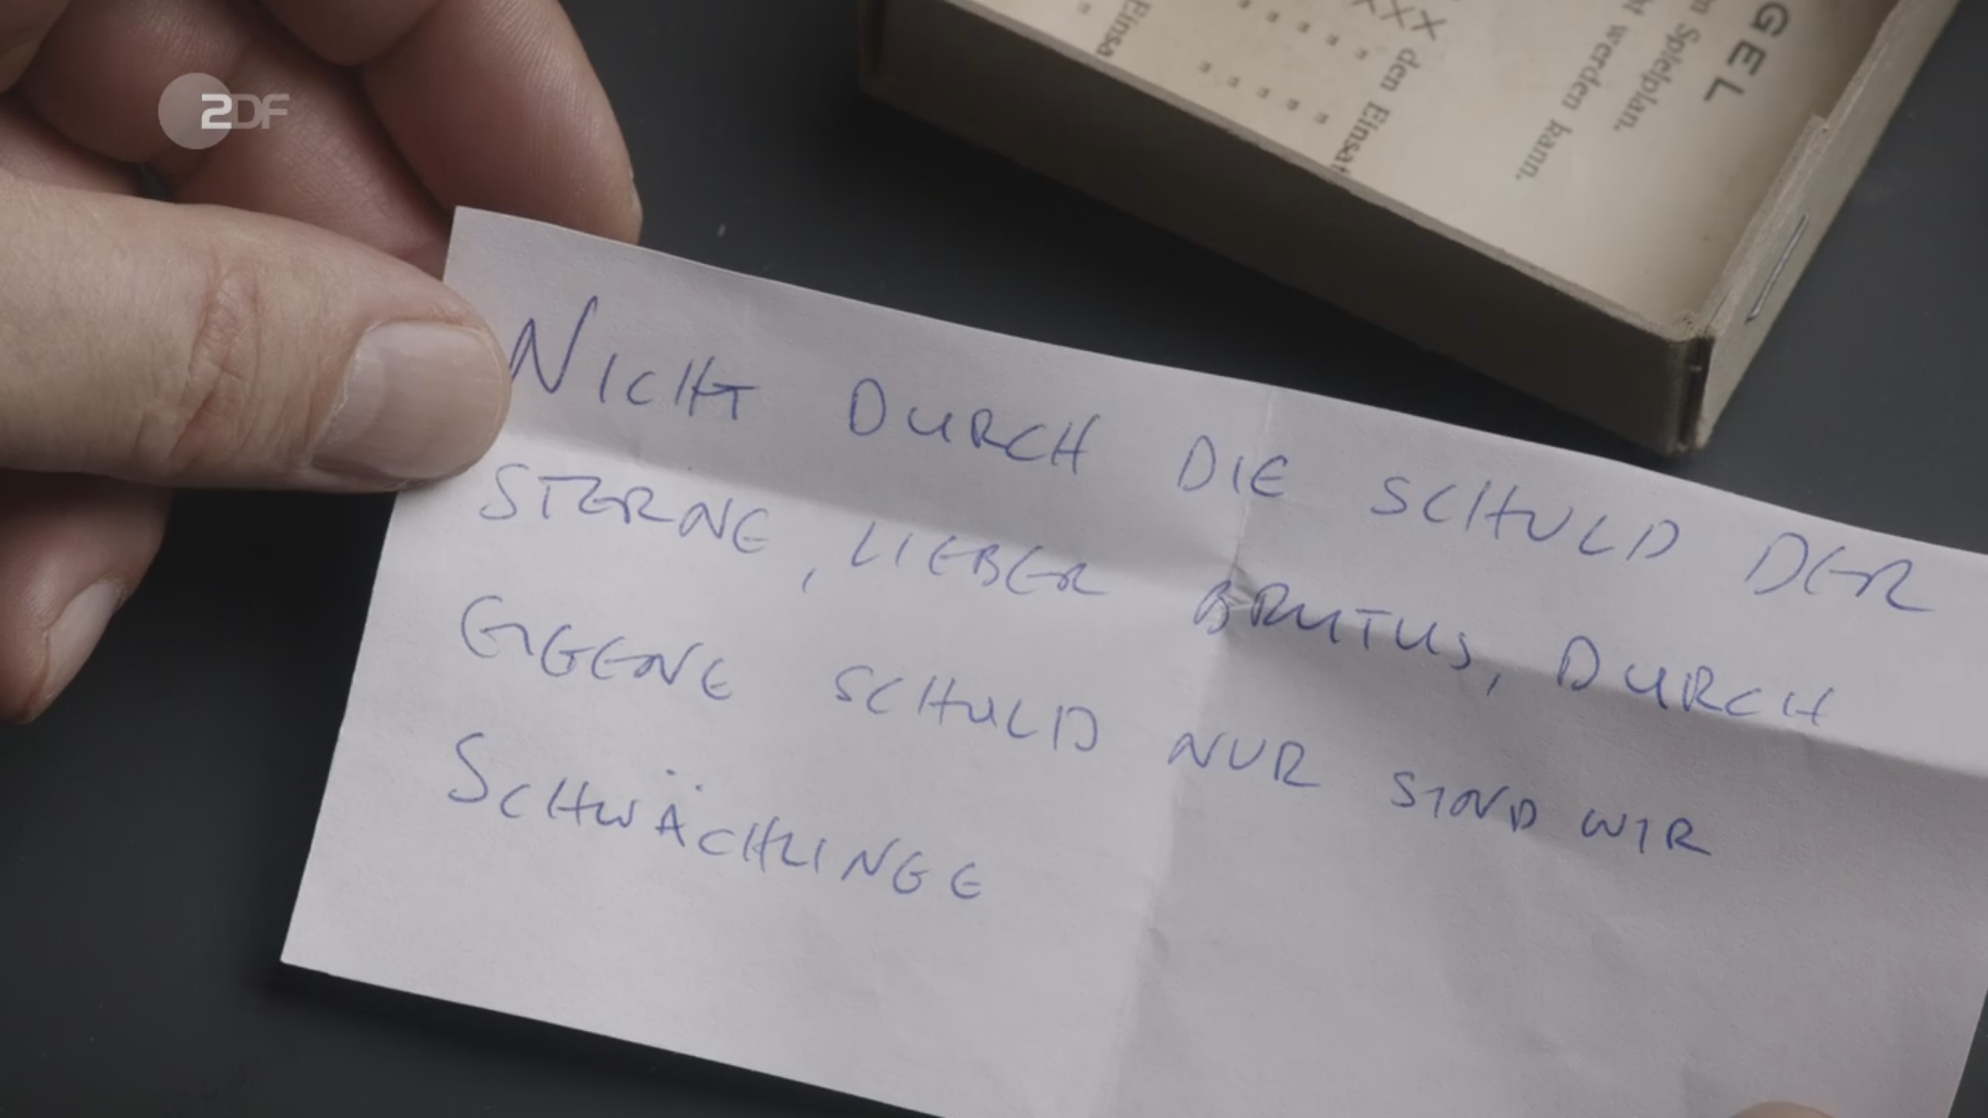 ZDF
GEL
n Spielplan.
t werden kann.
XXX den Einsat
" " " "
" " " "
Einsa
NICHT DURCH DIE SCHULD DER
STERNE, LIEBER BRUTUS, DURCH
EIGENE SCHULD NUR SIND WIR
SCHWÄCHLINGE